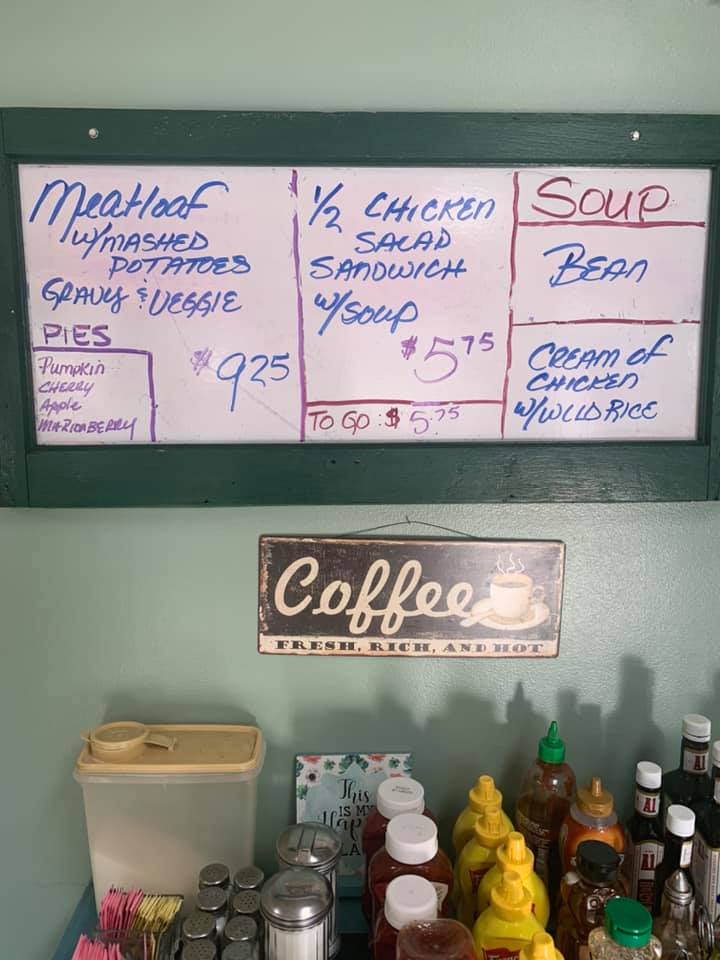 Meatloaf
w/MASHED
POTATOES
GRAVY & VEGGIE
$9.25
PIES
Pumpkin
CHERRY
Apple
MARIONBERRY
1/2 CHICKEN
SALAD
SANDWICH
w/SOUP
$5.75
TO GO: $5.75
SOUP
BEAN
CREAM OF
CHICKEN
W/WILD RICE
Coffee
FRESH, RICH, AND HOT
This
IS MY
A1
A1
A1